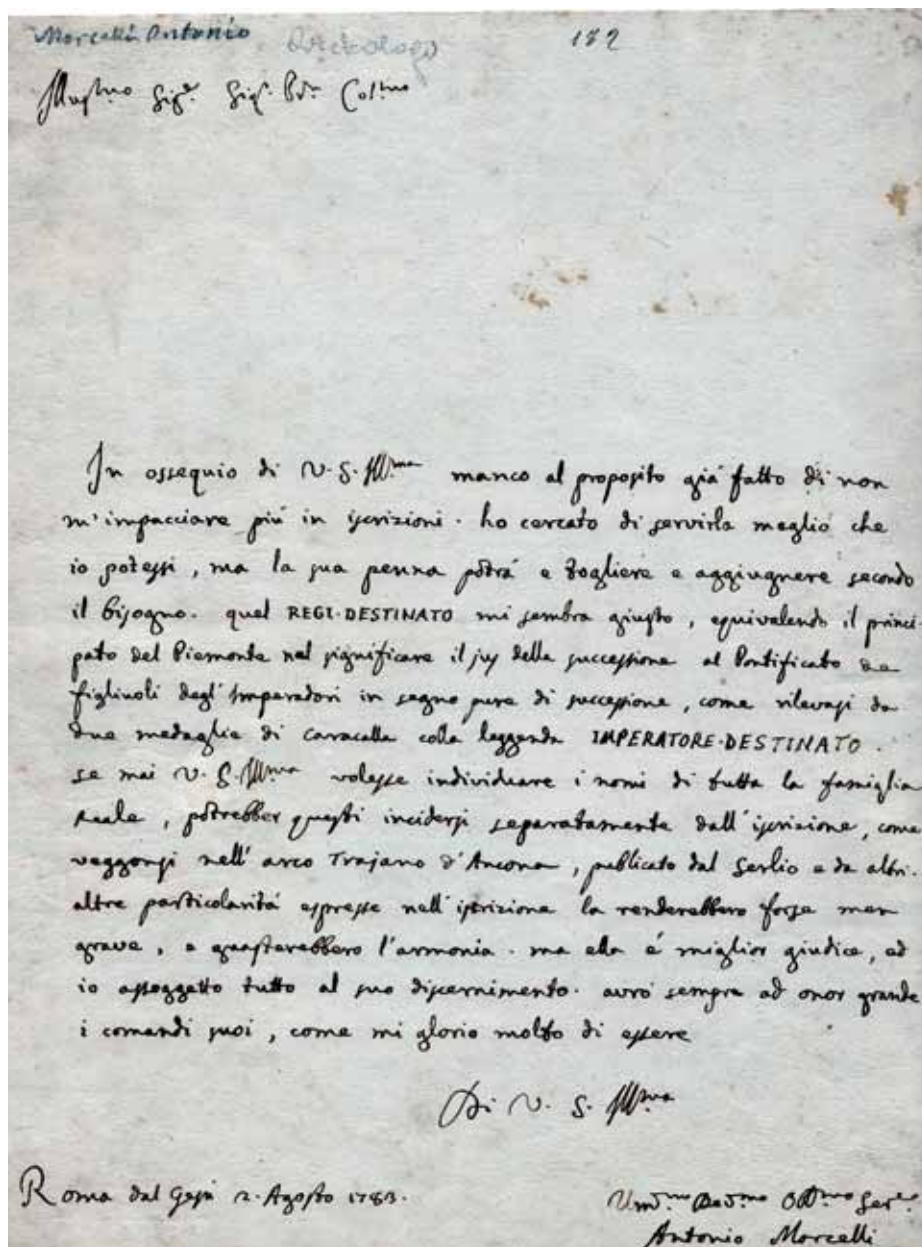 Morcelli Antonio Archeologo 182
Illustrmo Sigre. Sigr. Pdn Colmo
In ossequio di V. S. Illma manco al proposito già fatto di non
m'impacciare più in iscrizioni. ho cercato di servirla meglio che
io potessi, ma la sua penna potrà e togliere e aggiugnere secondo
il bisogno. quel REGI·DESTINATO mi sembra giusto, equivalendo il princi-
pato del Piemonte nel significare il jus della successione al Pontificato de
figliuoli degl'Imperadori in segno pure di successione, come rilevasi da
due medaglie di Caracalla colla leggenda IMPERATORE·DESTINATO.
se mai V. S. Illma volesse individuare i nomi di tutta la famiglia
reale, potrebber questi incidersi separatamente dall'iscrizione, come
veggonsi nell'arco Trajano d'Ancona, publicato dal Serlio e da altri.
altre particolarità espresse nell'iscrizione la renderebbero forse men
grave, e guasterebbero l'armonia. ma ella è miglior giudice, ed
io assoggetto tutto al suo discernimento. avrò sempre ad onor grande
i comandi suoi, come mi glorio molto di essere
Di V. S. Illma
Roma dal Gesù 2. Agosto 1783.
Umo.mo Devo.mo Obb.mo Sere
Antonio Morcelli